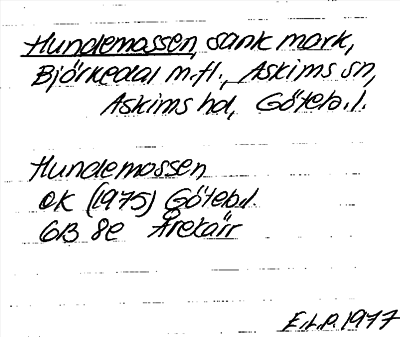 Hundemossen, sank mark,
Björkedal m.fl., Askims sn,
Askims hd, Göteb.l.
Hundemossen
OK (1975) Göteb.l.
6B 8e Årekärr
E.L.P. 1977